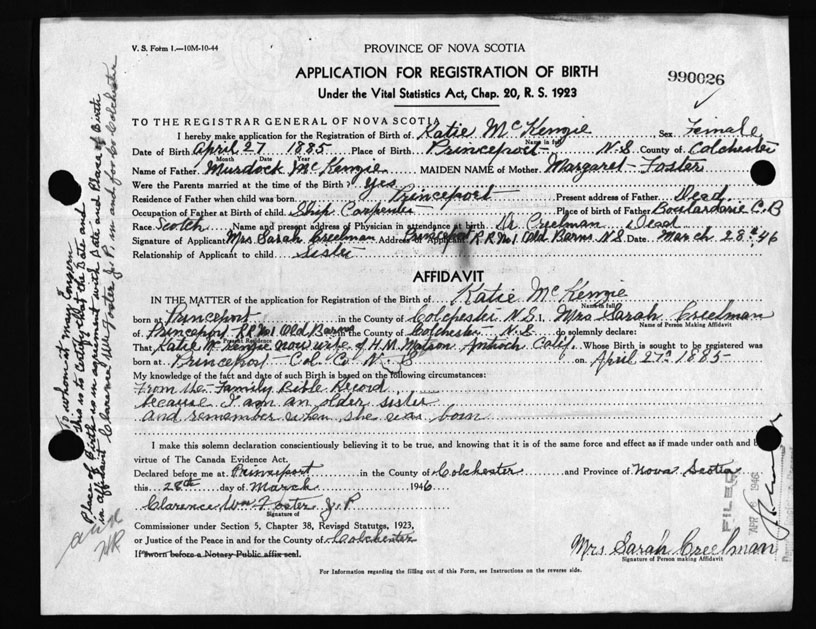 V. S. Form 1.—10M-10-44
PROVINCE OF NOVA SCOTIA
APPLICATION FOR REGISTRATION OF BIRTH
990026
Under the Vital Statistics Act, Chap. 20, R. S. 1923
TO THE REGISTRAR GENERAL OF NOVA SCOTIA
I hereby make application for the Registration of Birth of Katie McKenzie Sex Female
Name in full
Date of Birth April 27 1885 Place of Birth Princeport N.S County of Colchester
Month Date Year
Name of Father Murdock McKenzie MAIDEN NAME of Mother Margaret Foster
Were the Parents married at the time of the Birth? Yes
Residence of Father when child was born Princeport Present address of Father Dead
Occupation of Father at Birth of child Ship Carpenter Place of birth of Father Boulardarie C.B
Race Scotch Name and present address of Physician in attendance at birth Dr Creelman Dead
Signature of Applicant Mrs Sarah Creelman Address of Applicant Princeport R.R No1 Old Barns N.S. Date March 28th 46
Relationship of Applicant to child Sister
AFFIDAVIT
IN THE MATTER of the application for Registration of the Birth of Katie McKenzie
Name in full
born at Princeport in the County of Colchester N.S. I, Mrs Sarah Creelman
Name of Person Making Affidavit
of Princeport R.R No1 Old Barns in the County of Colchester N.S do solemnly declare:
Present Residence
That Katie McKenzie now wife of H.M. Matson Antioch Calif. Whose Birth is sought to be registered was
born at Princeport Col. Co. N.S on April 27th 1885
My knowledge of the fact and date of such Birth is based on the following circumstances:
From the Family Bible Record
because I am an older sister
and remember when she was born
I make this solemn declaration conscientiously believing it to be true, and knowing that it is of the same force and effect as if made under oath and by
virtue of The Canada Evidence Act.
Declared before me at Princeport in the County of Colchester and Province of Nova Scotia
this 28th day of March 1946
Clarence Wm Foster J.P
Signature of
Commissioner under Section 5, Chapter 38, Revised Statutes, 1923,
or Justice of the Peace in and for the County of Colchester
If sworn before a Notary Public affix seal.
Mrs Sarah Creelman
Signature of Person making Affidavit
For Information regarding the filling out of this Form, see Instructions on the reverse side.
To whom it may Concern
this is to Certify that the Date and
Place of Birth is in agreement with Date and Place of Birth
in affidavit Clarence Wm Foster J.P in and for Co Colchester
FILED
APR 1946